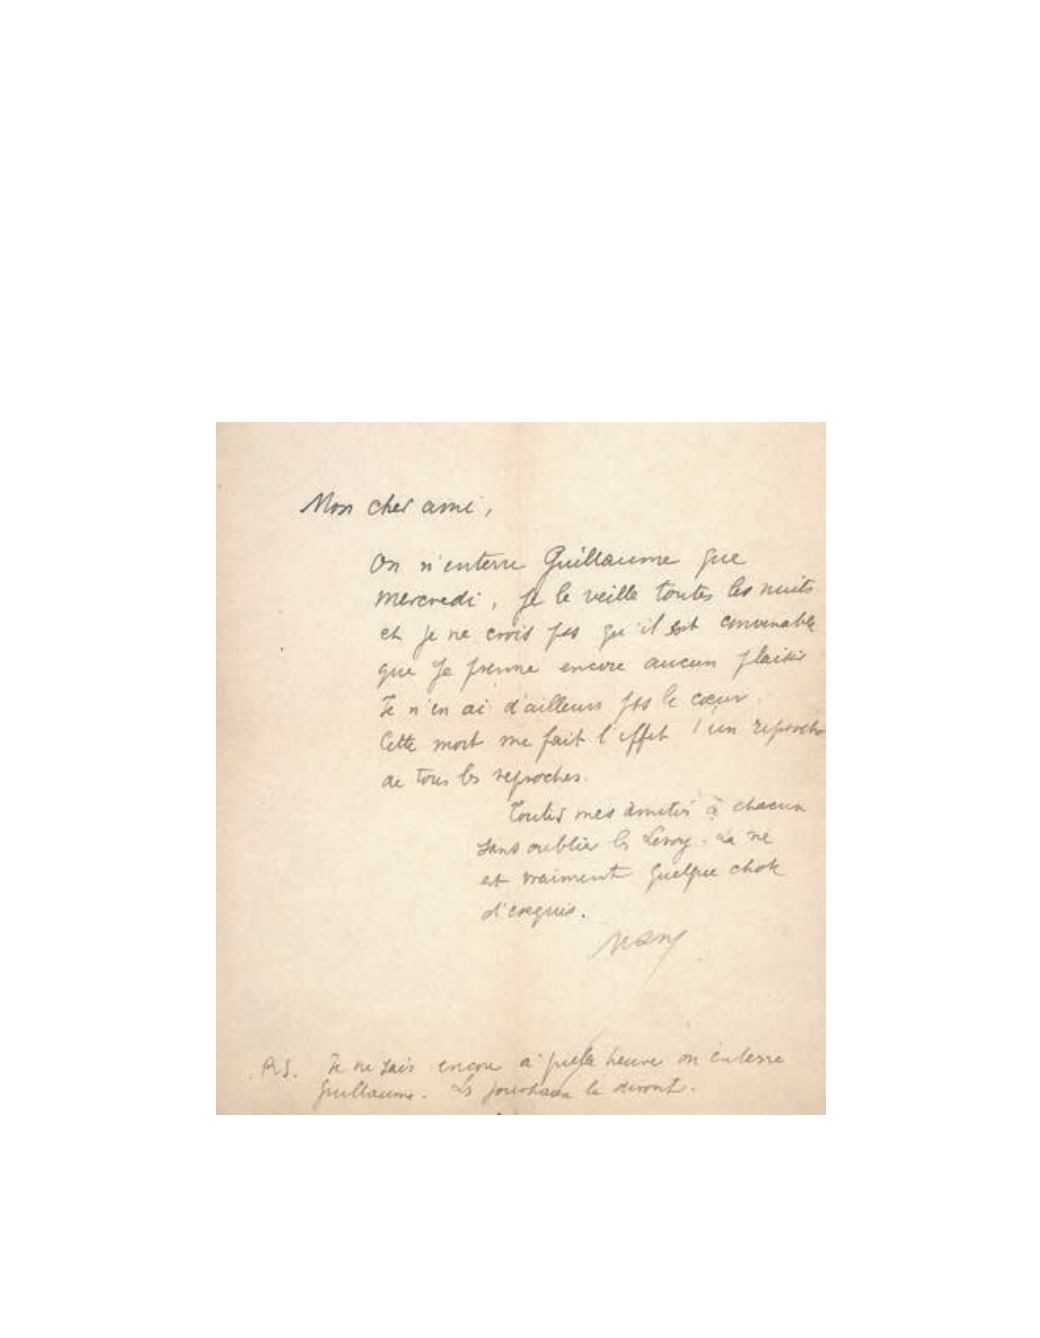 Mon cher ami,
On n'enterre Guillaume que
mercredi, je le veille toutes les nuits
et je ne crois pas qu'il est convenable
que je prenne encore aucun plaisir
Je n'en ai d'ailleurs pas le cœur.
Cette mort me fait l'effet d'un reproche
de tous les reproches.
Toutes mes amitiés à chacun
sans oublier les Leroy.
est vraiment quelque chose
d'exquis.
P.S. Je ne sais encore à quelle heure on enterre
Guillaume. Les journaux le diront.